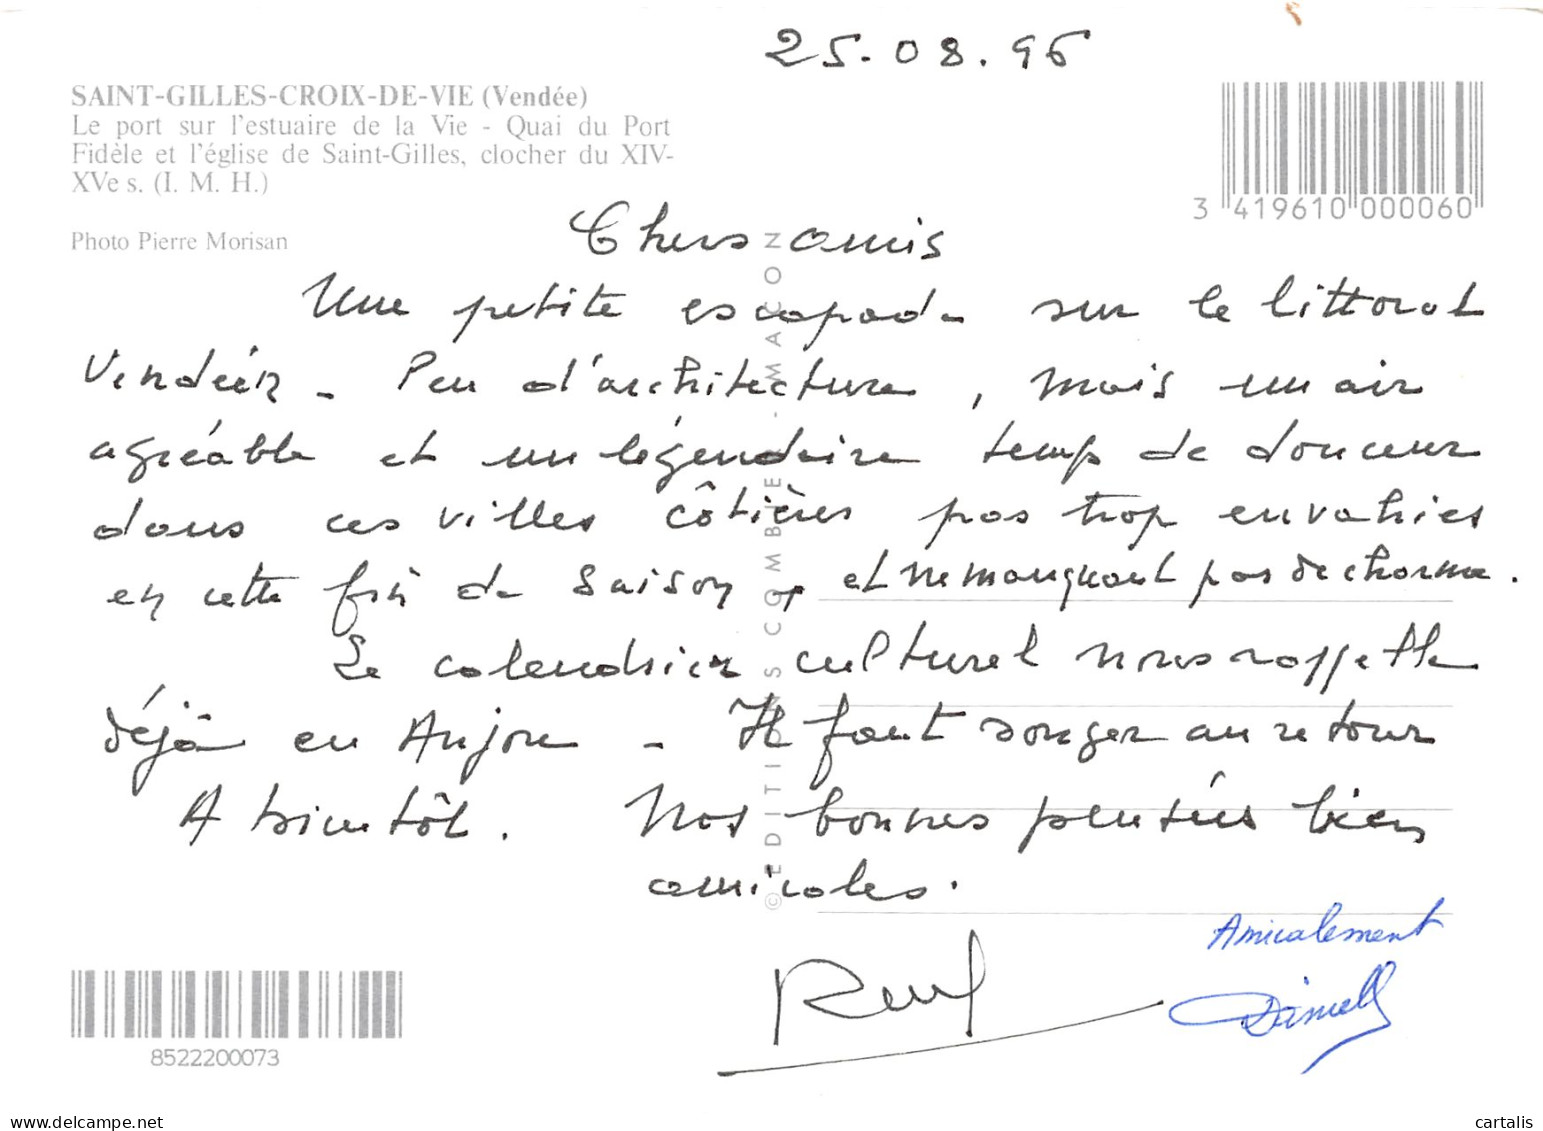 25.08.96
SAINT-GILLES-CROIX-DE-VIE (Vendée)
Le port sur l'estuaire de la Vie - Quai du Port
Fidèle et l'église de Saint-Gilles, clocher du XIV-
XVe s. (I. M. H.)
Photo Pierre Morisan
3 419610 000060
Chers amis
Une petite escapade sur le littoral
Vendéen - Peu d'architecture, mais un air
agréable et un légendaire temps de douceur
dans ces villes côtières pas trop envahies
en cette fin de saison, et ne manquant pas de charme.
Le calendrier culturel nous rappelle
déjà en Anjou - Il faut songer au retour
A bientôt. Nos bonnes pensées bien
amicales.
Amicalement
© EDITIONS COMBIER - MACON
8522200073
delcampe.net
cartalis